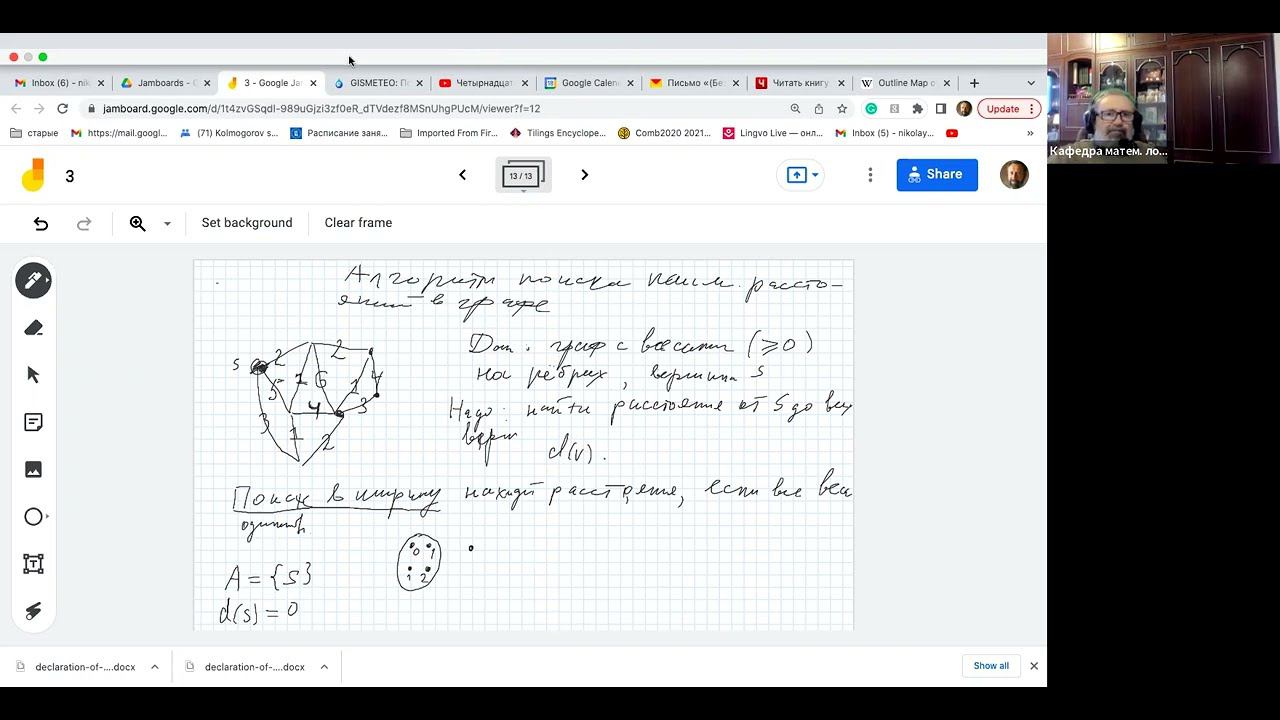 Inbox (6) - nik
Jamboards - G
3 - Google Ja
GISMETEO: П
Четырнадцат
Google Calen
Письмо «(Без
Читать книгу
Outline Map o
jamboard.google.com/d/1t4zvGSqdl-989uGjzi3zf0eR_dTVdezf8MSnUhgPUcM/viewer?f=12
Update
старые
https://mail.googl...
(71) Kolmogorov s...
Расписание заня...
Imported From Fir...
Tilings Encyclope...
Comb2020 2021...
Lingvo Live — онл...
Inbox (5) - nikolay...
»
Кафедра матем. ло...
3
13 / 13
Share
Set background
Clear frame
Алгоритм поиска наим. рассто-
яний в графе
Дан. граф с весами (≥0)
на рёбрах, вершина s
Надо: найти расстояние от s до всех
верш d(v).
s 2 2 5 1 6 1 4 4 3 3 1 2
Поиск в ширину находит расстояния, если все веса
одинак.
0 1
1 2
A = {s}
d(s) = 0
declaration-of-....docx
declaration-of-....docx
Show all